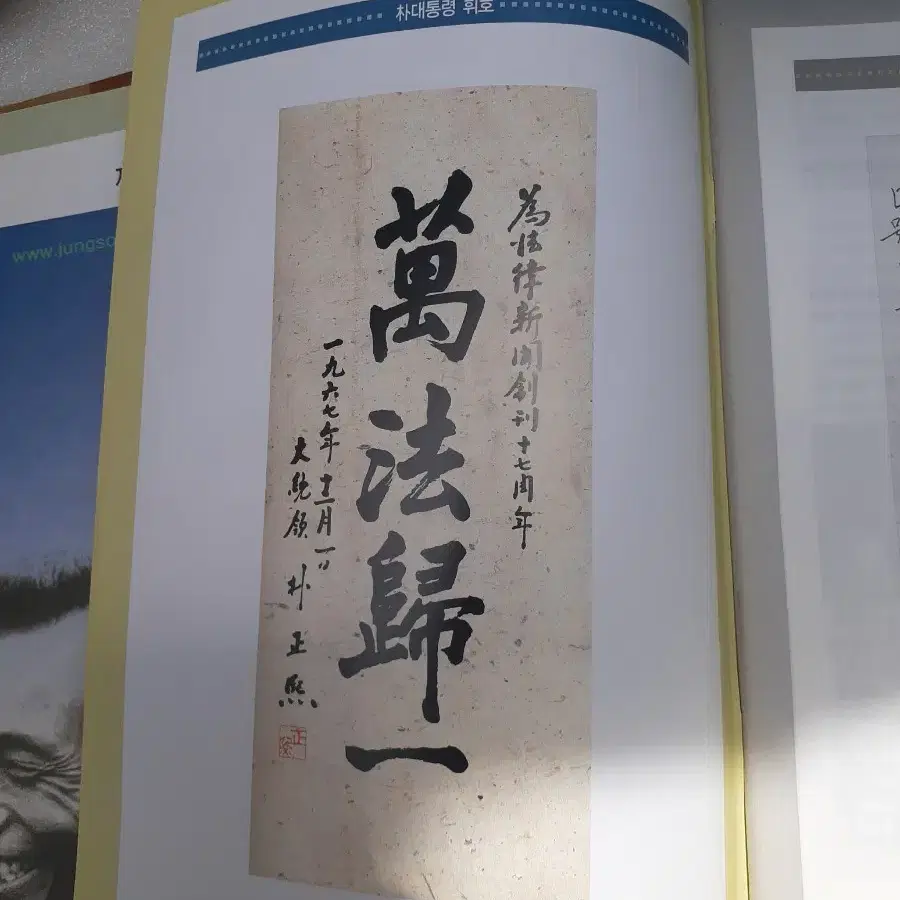 朴대통령 휘호
為法律新聞創刊十七周年
萬法歸一
一九六七年 十二月 一日
大統領 朴正熙
www.jungso